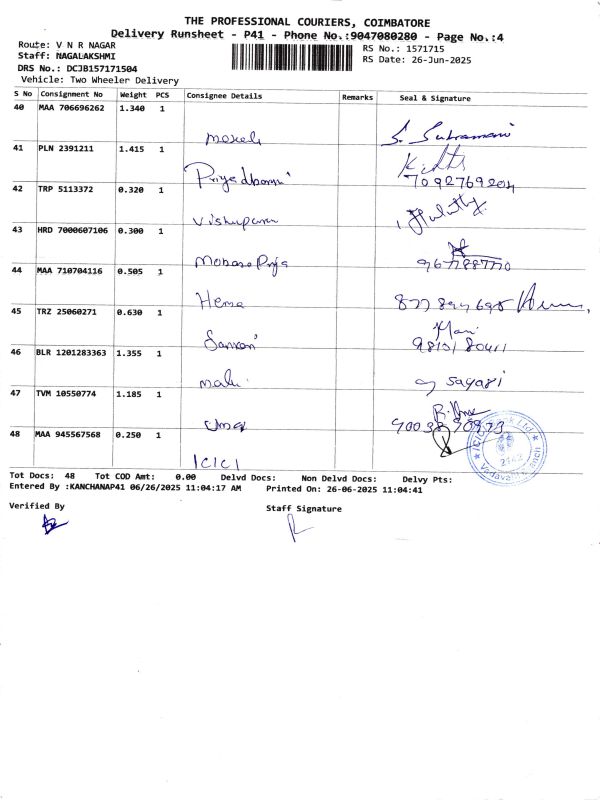 THE PROFESSIONAL COURIERS, COIMBATORE
Delivery Runsheet - P41 - Phone No.:9047080280 - Page No.:4
Route: V N R NAGAR
RS No.: 1571715
Staff: NAGALAKSHMI
RS Date: 26-Jun-2025
DRS No.: DCJB157171504
Vehicle: Two Wheeler Delivery
S No Consignment No Weight PCS Consignee Details Remarks Seal & Signature
40 MAA 706696262 1.340 1
S. Subramani
41 PLN 2391211 1.415 1
Priyadharni
7092769204
42 TRP 5113372 0.320 1
43 HRD 7000607106 0.300 1
44 MAA 710704116 0.505 1
Hema
45 TRZ 25060271 0.630 1
Mani
46 BLR 1201283363 1.355 1
sagari
47 TVM 10550774 1.185 1
Uma
48 MAA 945567568 0.250 1
ICICI
2142
Tot Docs: 48 Tot COD Amt: 0.00 Delvd Docs: Non Delvd Docs: Delvy Pts:
Entered By :KANCHANAP41 06/26/2025 11:04:17 AM Printed On: 26-06-2025 11:04:41
Verified By
Staff Signature